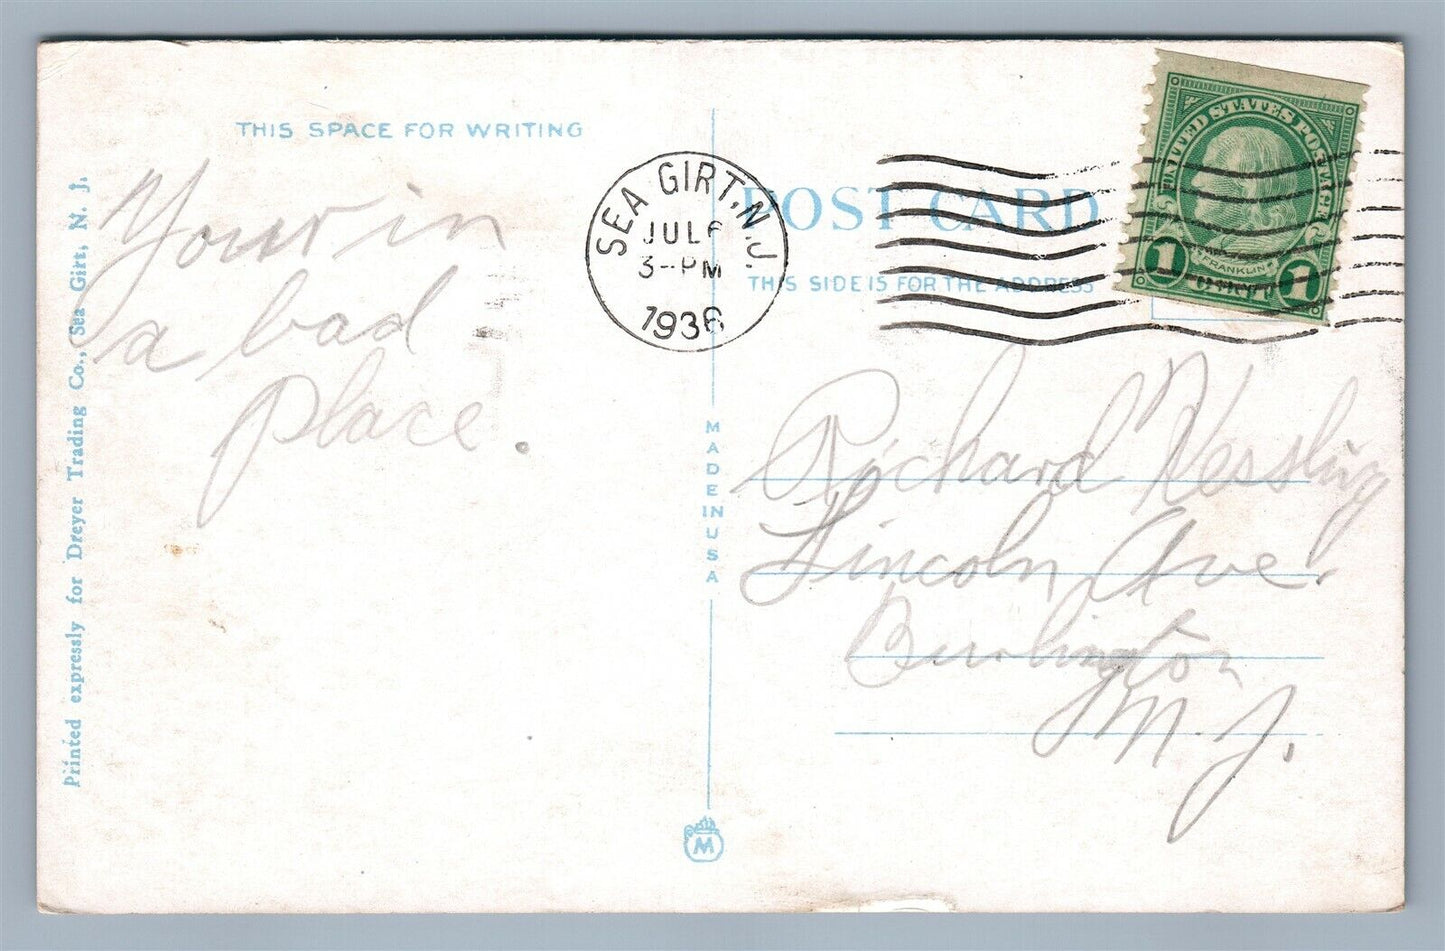 THIS SPACE FOR WRITING
Your in
a bad
place.
Printed expressly for Dreyer Trading Co., Sea Girt, N. J.
SEA GIRT, N.J.
JUL 6
3-PM
1936
POST CARD
THIS SIDE IS FOR THE ADDRESS
UNITED STATES POSTAGE
FRANKLIN
1 CENT 1
MADE IN USA
Richard Nessling
Lincoln Ave.
Burlington
N. J.
M